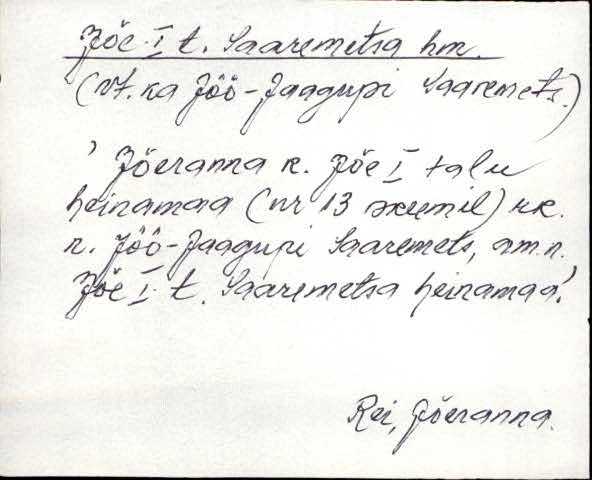 Jõe I t. Saaremetsa hm.
(vt. ka Jõõ-Jaagupi Saaremets.)
' Jõeranna k. Jõe I talu
heinamaa (nr 13 skeemil) rk.
n. Jõõ-Jaagupi Saaremets, am. n.
Jõe I t. Saaremetsa heinamaa'.
Rei, Jõeranna.